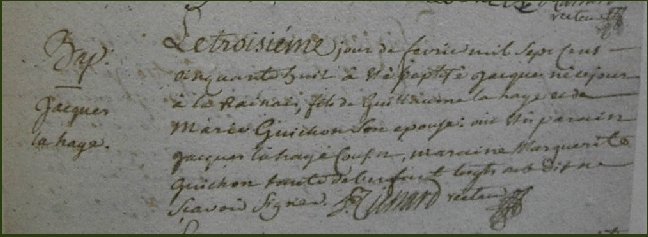 recteur
Bap.
Jacques
la haye.
Le troisiéme jour de fevrie mil sept cens
cinquante huit à été baptisé jacques né ce jour
à la Rainais, fils de Guillaume la haye et de
Marie Guichon Son epouse: ont été parain
jacques la haye Cousin, maraine Marguerite
Guichon tante de l'enfant lesquels ont dit ne
Scavoir Signer. recteur